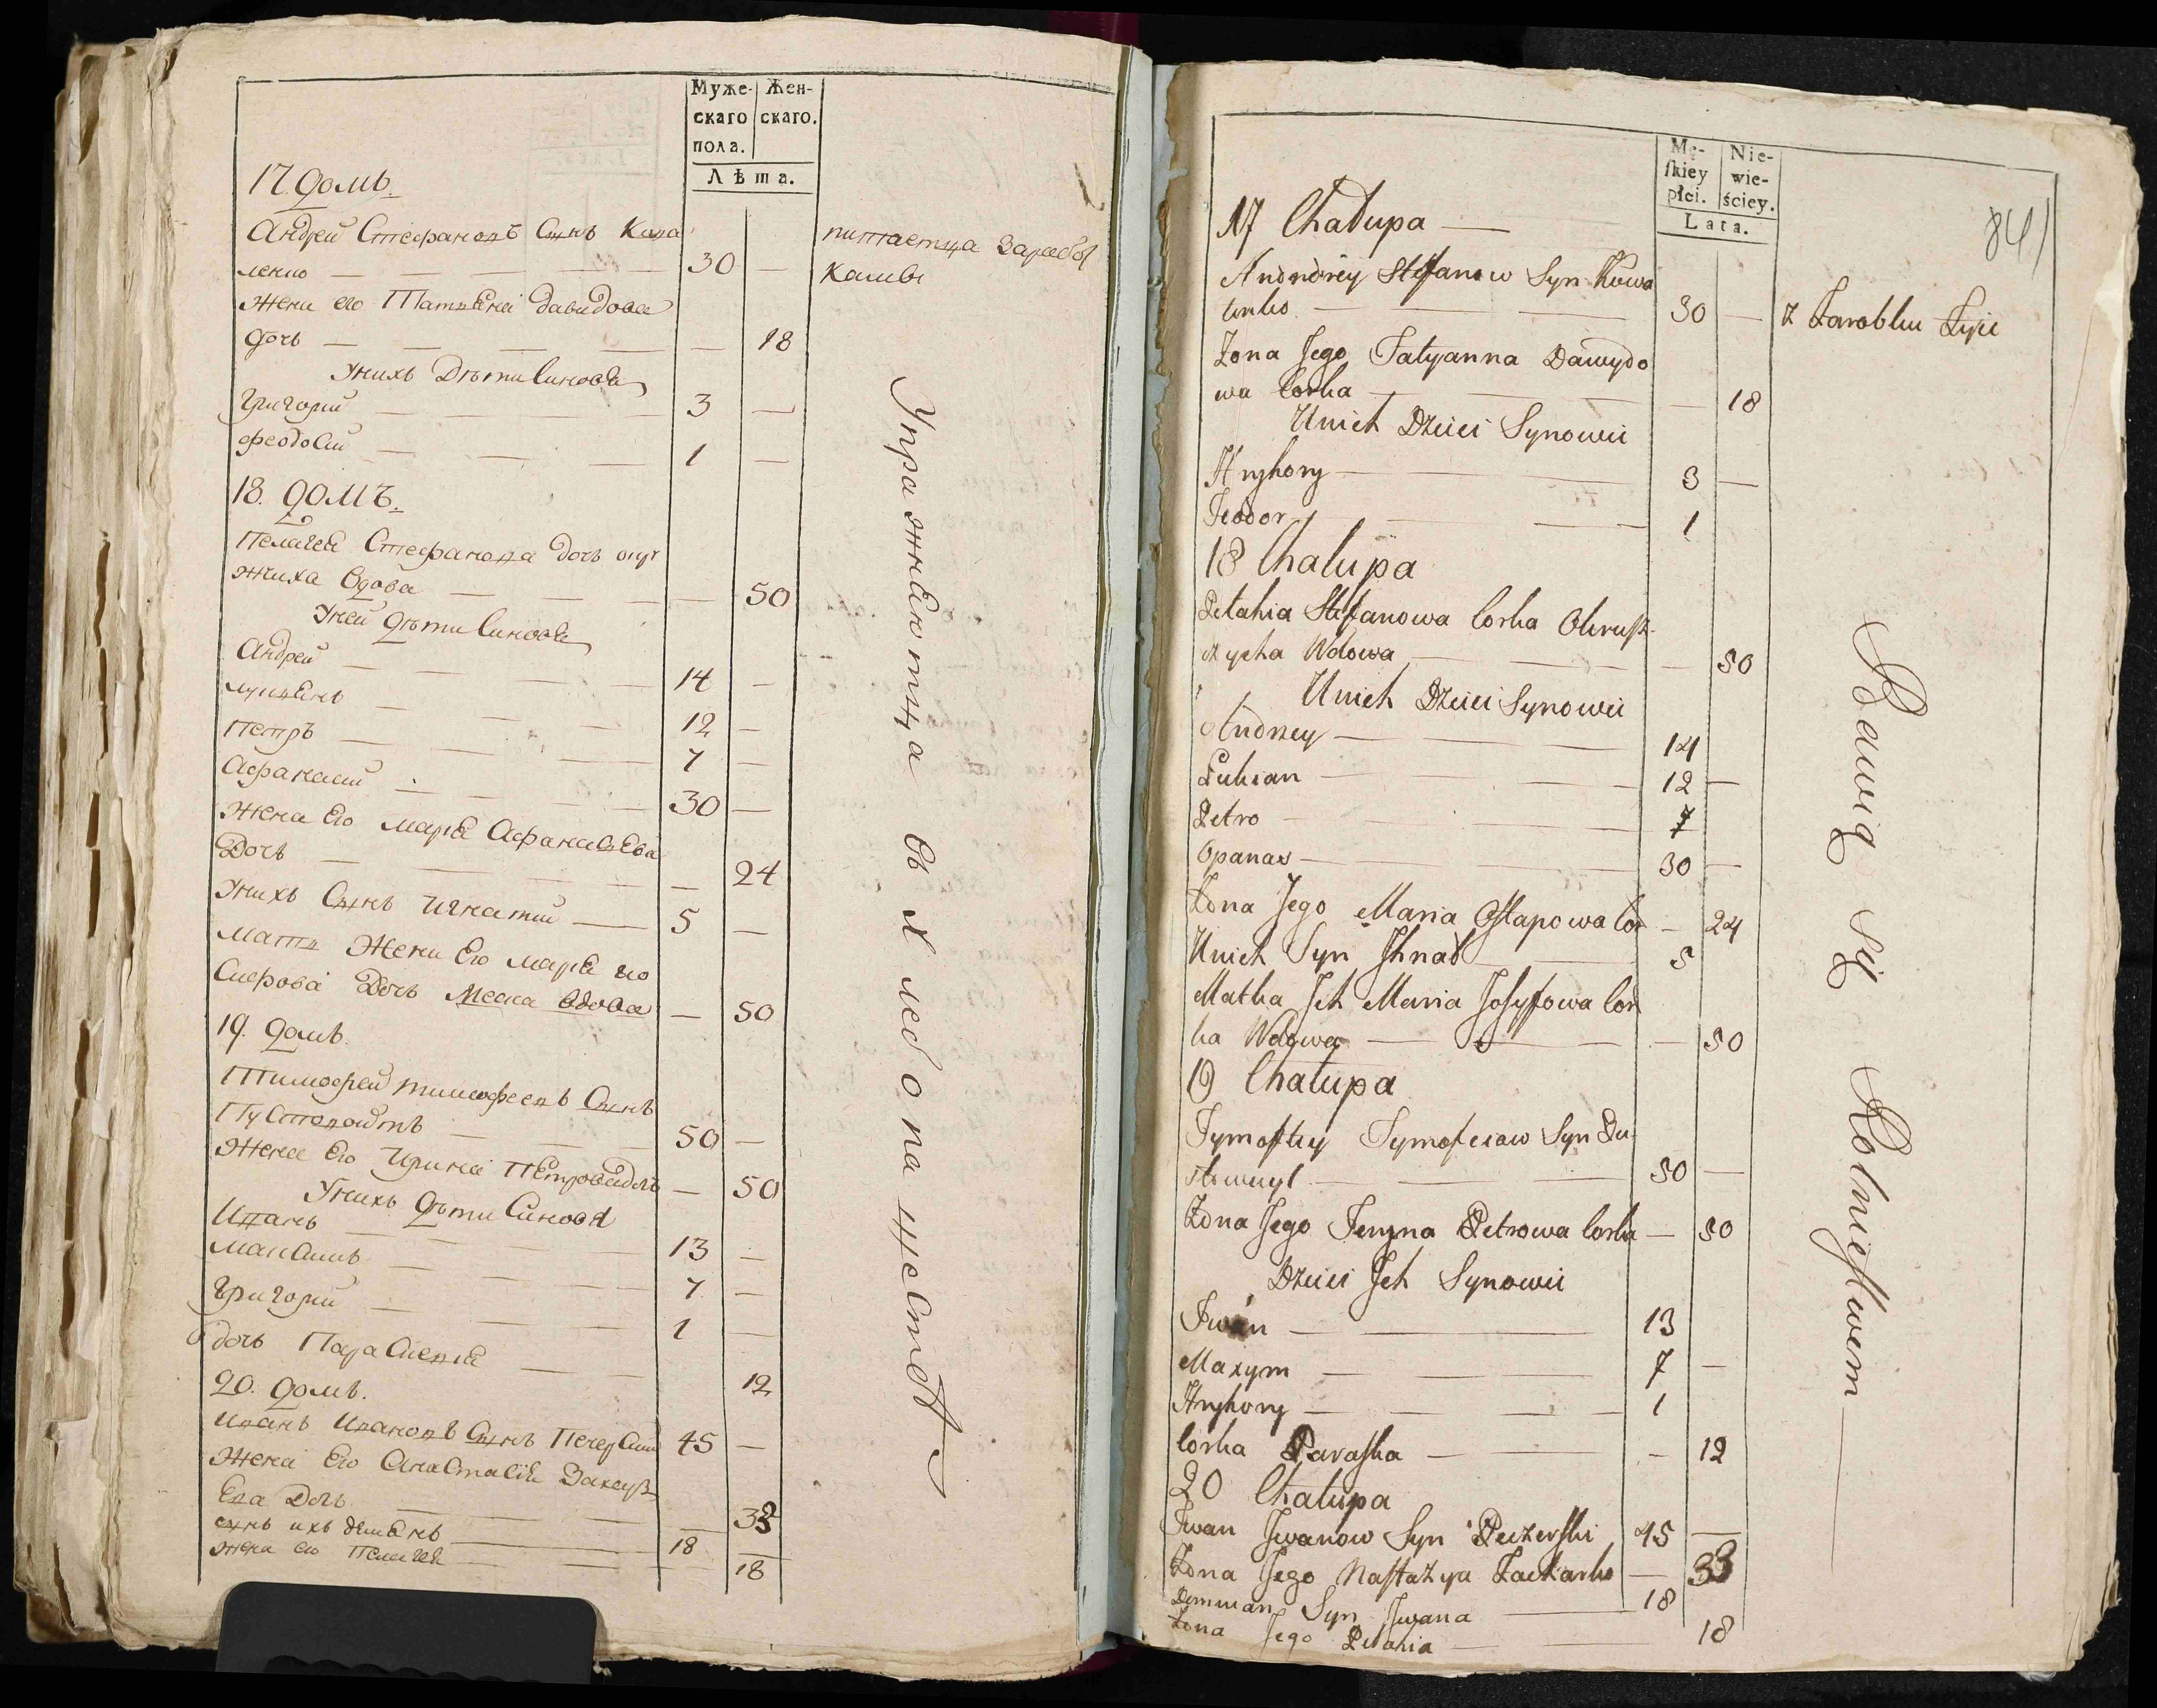 Муже-
скаго
пола.
Жен-
скаго.
Лѣта.
17 домъ.
Андрей Стефановъ Сынъ Кова
ленко — 30 —
жена его Татьяна Давидова
дочь — — 18
Унихъ Дѣти Синовя
Григорий — 3 —
Феодосий — 1 —
18. домъ.
Пелагея Стефанова дочь
жиха вдова — — 50
Уней дѣти Синовя
Андрей — 14 —
Лукьянъ — 12 —
Петръ — 7 —
Афанасий — 30 —
жена Его Марья Афанасьева
Дочь — — 24
Унихъ Сынъ Игнатий — 5 —
Мать жени Его Марья ио
сифова Дочь вдова — 50
19. домъ.
Тимофей тимофеевъ Сынъ
Пустовойтъ — 50 —
жена Его Ирина Петрова дочь — 50
Унихъ дѣти Синовя
Иванъ — 13 —
Максимъ — 7 —
Григорий — 1 —
дочь Параскевия — 12
20. домъ.
Иванъ Ивановъ Сынъ Печерский 45 —
жена Его Анастасия Захарь
ева Дочь — — 33
сынъ ихъ демянъ — 18 —
жена его Пелагея — 18
питаетца Заработ
камы
Упражняютца въ хлебопашестве
Mę-
ſkiey
płci.
Nie-
wie-
ściey.
Lata.
841
17 Chałupa —
Andndrey Stefanow Syn Kowa
lenko — 30 — z Zarobku Żyie
Żona Jego Tatyanna Dawydo
wa Corka — — 18
Unich Dzieci Synowii
Hryhory — 3 —
Teodor — 1
18 Chałupa
Pelahia Stefanowa Corka Okruſz-
czycha Wdowa — — 50
Unich Dzieci Synowii
Andrzey — 14
Łukian — 12 —
Petro — 7
Opanas — 30 —
Żona Jego Maria Oſtapowa Cor — 24
Unich Syn Jhnat — 5
Matka Jch Maria Joſyfowa Cor
ka Wdowa — — 50
19 Chałupa
Tymoftey Tymofeiow Syn Pu-
stowuyt — 50 —
Żona Jego Jeryna Petrowa Corka — 50
Dzieci Jch Synowii
Jwan — 13
Maxym — 7 —
Hryhory — 1
Corka Paraſka — — 12
20 Chałupa
Jwan Jwanow Syn Peczerſki 45 —
Żona Jego Naſtazya Zacharko — 33
Demmian Syn Jwana — 18
Żona Jego Pelahia — 18
Bawią się Rolnieſtwem —